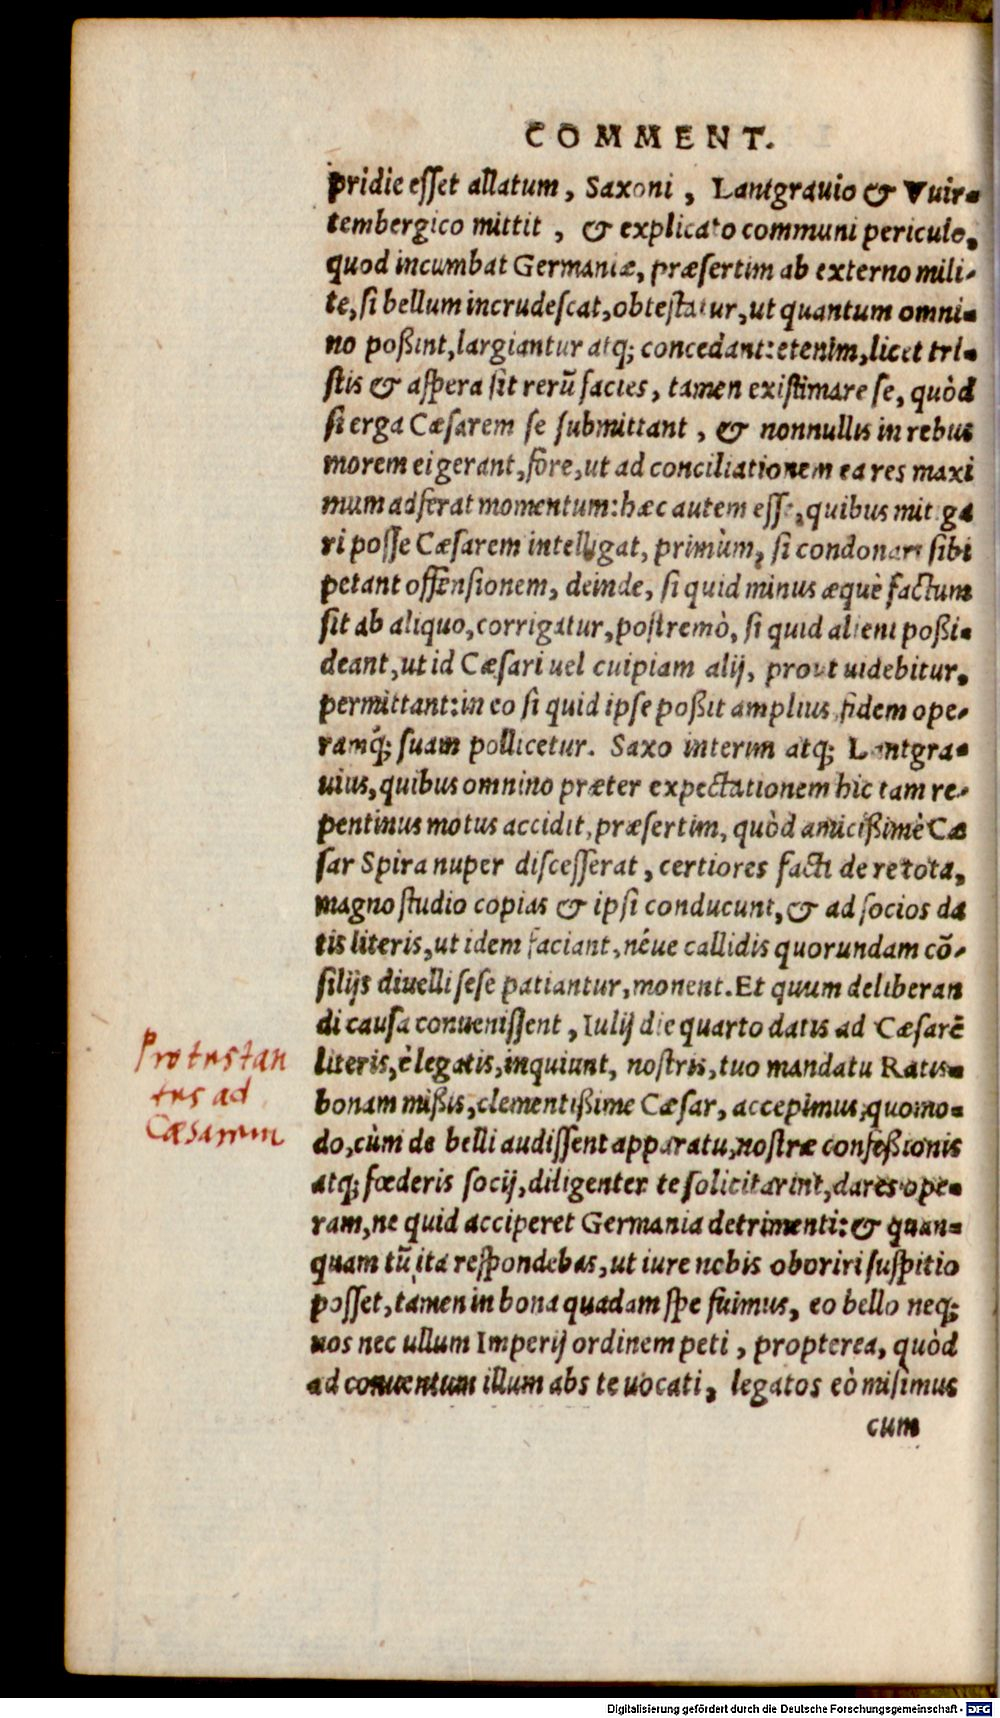 COMMENT.
pridie esset allatum, Saxoni, Lantgrauio & Vuir-
tembergico mittit, & explicato communi periculo,
quod incumbat Germaniæ, præsertim ab externo mili-
te, si bellum incrudescat, obtestatur, ut quantum omni-
no poßint, largiantur atq; concedant: etenim, licet tri-
stis & aspera sit rerū facies, tamen existimare se, quòd
si erga Cæsarem se submittant, & nonnullis in rebus
morem ei gerant, fore, ut ad conciliationem ea res maxi
mum adferat momentum: hæc autem esse, quibus mitiga
ri posse Cæsarem intelligat, primùm, si condonari sibi
petant offensionem, deinde, si quid minus æquè factum
sit ab aliquo, corrigatur, postremò, si quid alieni poßi-
deant, ut id Cæsari uel cuipiam alij, prout uidebitur,
permittant: in eo si quid ipse poßit amplius, fidem ope-
ramq́; suam pollicetur. Saxo interim atq; Lantgra-
uius, quibus omnino præter expectationem hic tam re-
pentinus motus accidit, præsertim, quòd amicißimè Cæ
sar Spira nuper discesserat, certiores facti de re tota,
magno studio copias & ipsi conducunt, & ad socios da
tis literis, ut idem faciant, néue callidis quorundam cō-
silijs diuelli sese patiantur, monent. Et quum deliberan
di causa conuenissent, Iulij die quarto datis ad Cæsarē
literis, è legatis, inquiunt, nostris, tuo mandatu Ratis-
bonam mißis, clementißime Cæsar, accepimus, quomo-
do, cùm de belli audissent apparatu, nostræ confeßionis
atq; fœderis socij, diligenter te solicitarint, dares ope-
ram, ne quid acciperet Germania detrimenti: & quan-
quam tū ita respondebas, ut iure nobis oboriri suspitio
posset, tamen in bona quadam spe fuimus, eo bello neq;
nos nec ullum Imperij ordinem peti, propterea, quòd
ad conuentum illum abs te uocati, legatos eò misimus
cum
Protestan
tes ad
Cæsarem
Digitalisierung gefördert durch die Deutsche Forschungsgemeinschaft - DFG